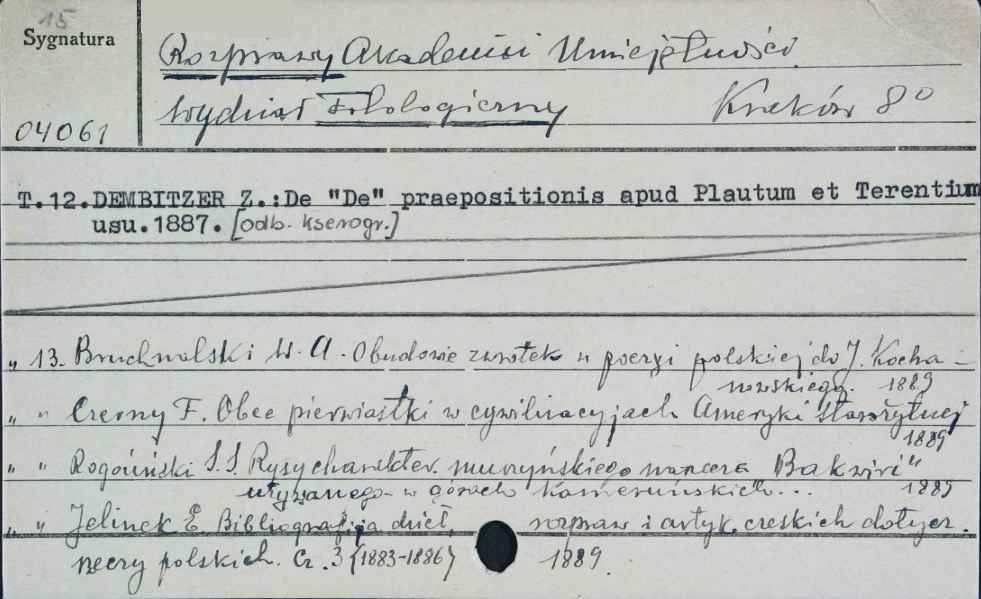 15
Sygnatura
Rozprawy Akademii Umiejętności.
Wydział Filologiczny Kraków 8°
04061
T.12.DEMBITZER Z.:De "De" praepositionis apud Plautum et Terentium
usu.1887. [odb. kserogr.]
„ 13. Bruchnalski W. A. O budowie zwrotek w poezyi polskiej do J. Kocha-
nowskiego. 1889
„ „ Czerny F. Obce pierwiastki w cywilizacyjach Ameryki starożytnej
1889
„ „ Rogoziński S. S. Rysy charakter. murzyńskiego narzecza Bakwiri"
używanego w górach Kameruńskich... 1885
„ „ Jelinek E. Bibliografija dzieł, rozpraw i artyk. czeskich dotycz.
rzeczy polskich. Cz. 3 (1883-1886) 1889.